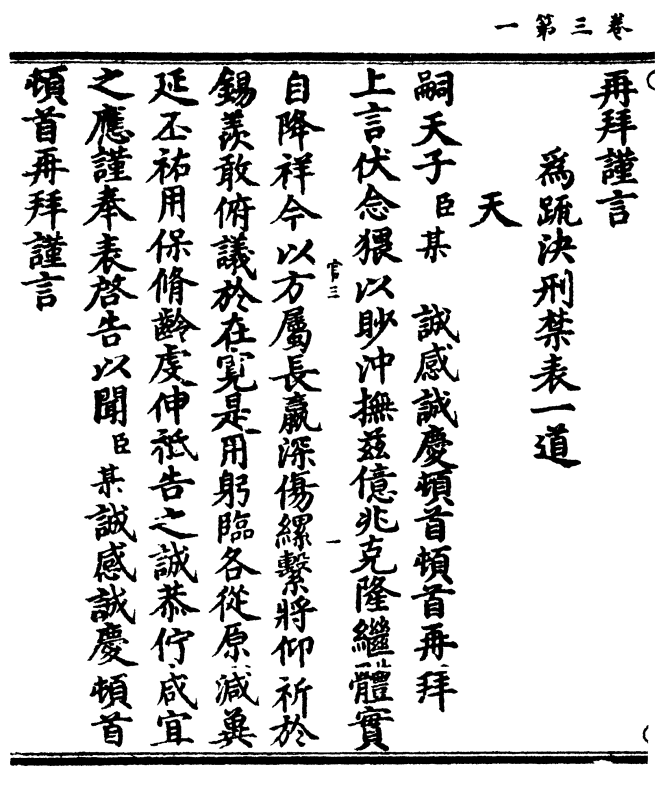 卷三第一
再拜謹言
爲䟽決刑禁表一道
天
嗣天子臣某 誠感誠慶頓首頓首再拜
上言伏念猥以眇沖撫茲億兆克隆繼體實
官三
一
自降祥今以方屬長嬴深傷縲繫將仰祈於
錫羨敢俯議於在寬是用躬臨各從原減兾
延丕祐用保脩齡虔伸祗告之誠恭佇咸宜
之應謹奉表啓告以聞臣某誠感誠慶頓首
頓首再拜謹言